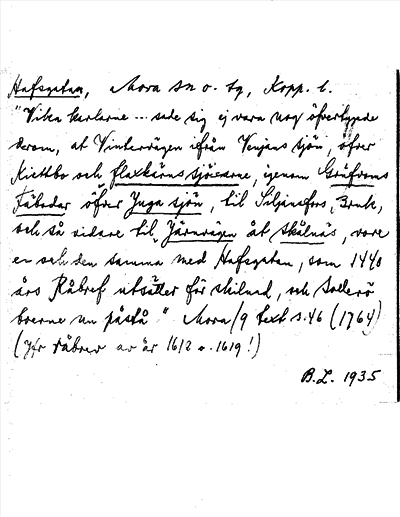 Hafsgatan, Mora sn o. tg, Kopp. l.
"Vika karlarne ... sade sig ej vara nog öfvertygade
derom, at Vintervägen ifrån Venjans sjön, öfver
Kiettbo och flaxkärns sjöarne, igenom Gråfvons
Fäbodar öfver Juga sjön, til Siljansfors Bruk,
och så vidare til Järnvägen åt Skålnäs, vore
en och den samma med Hafsgatan, som 1440
års Råbref utsätter för skilnad, och Sollerö
boerne nu påstå" Mora/9 text s. 46 (1764)
(Jfr råbrev av år 1612 o. 1619!)
B.L. 1935